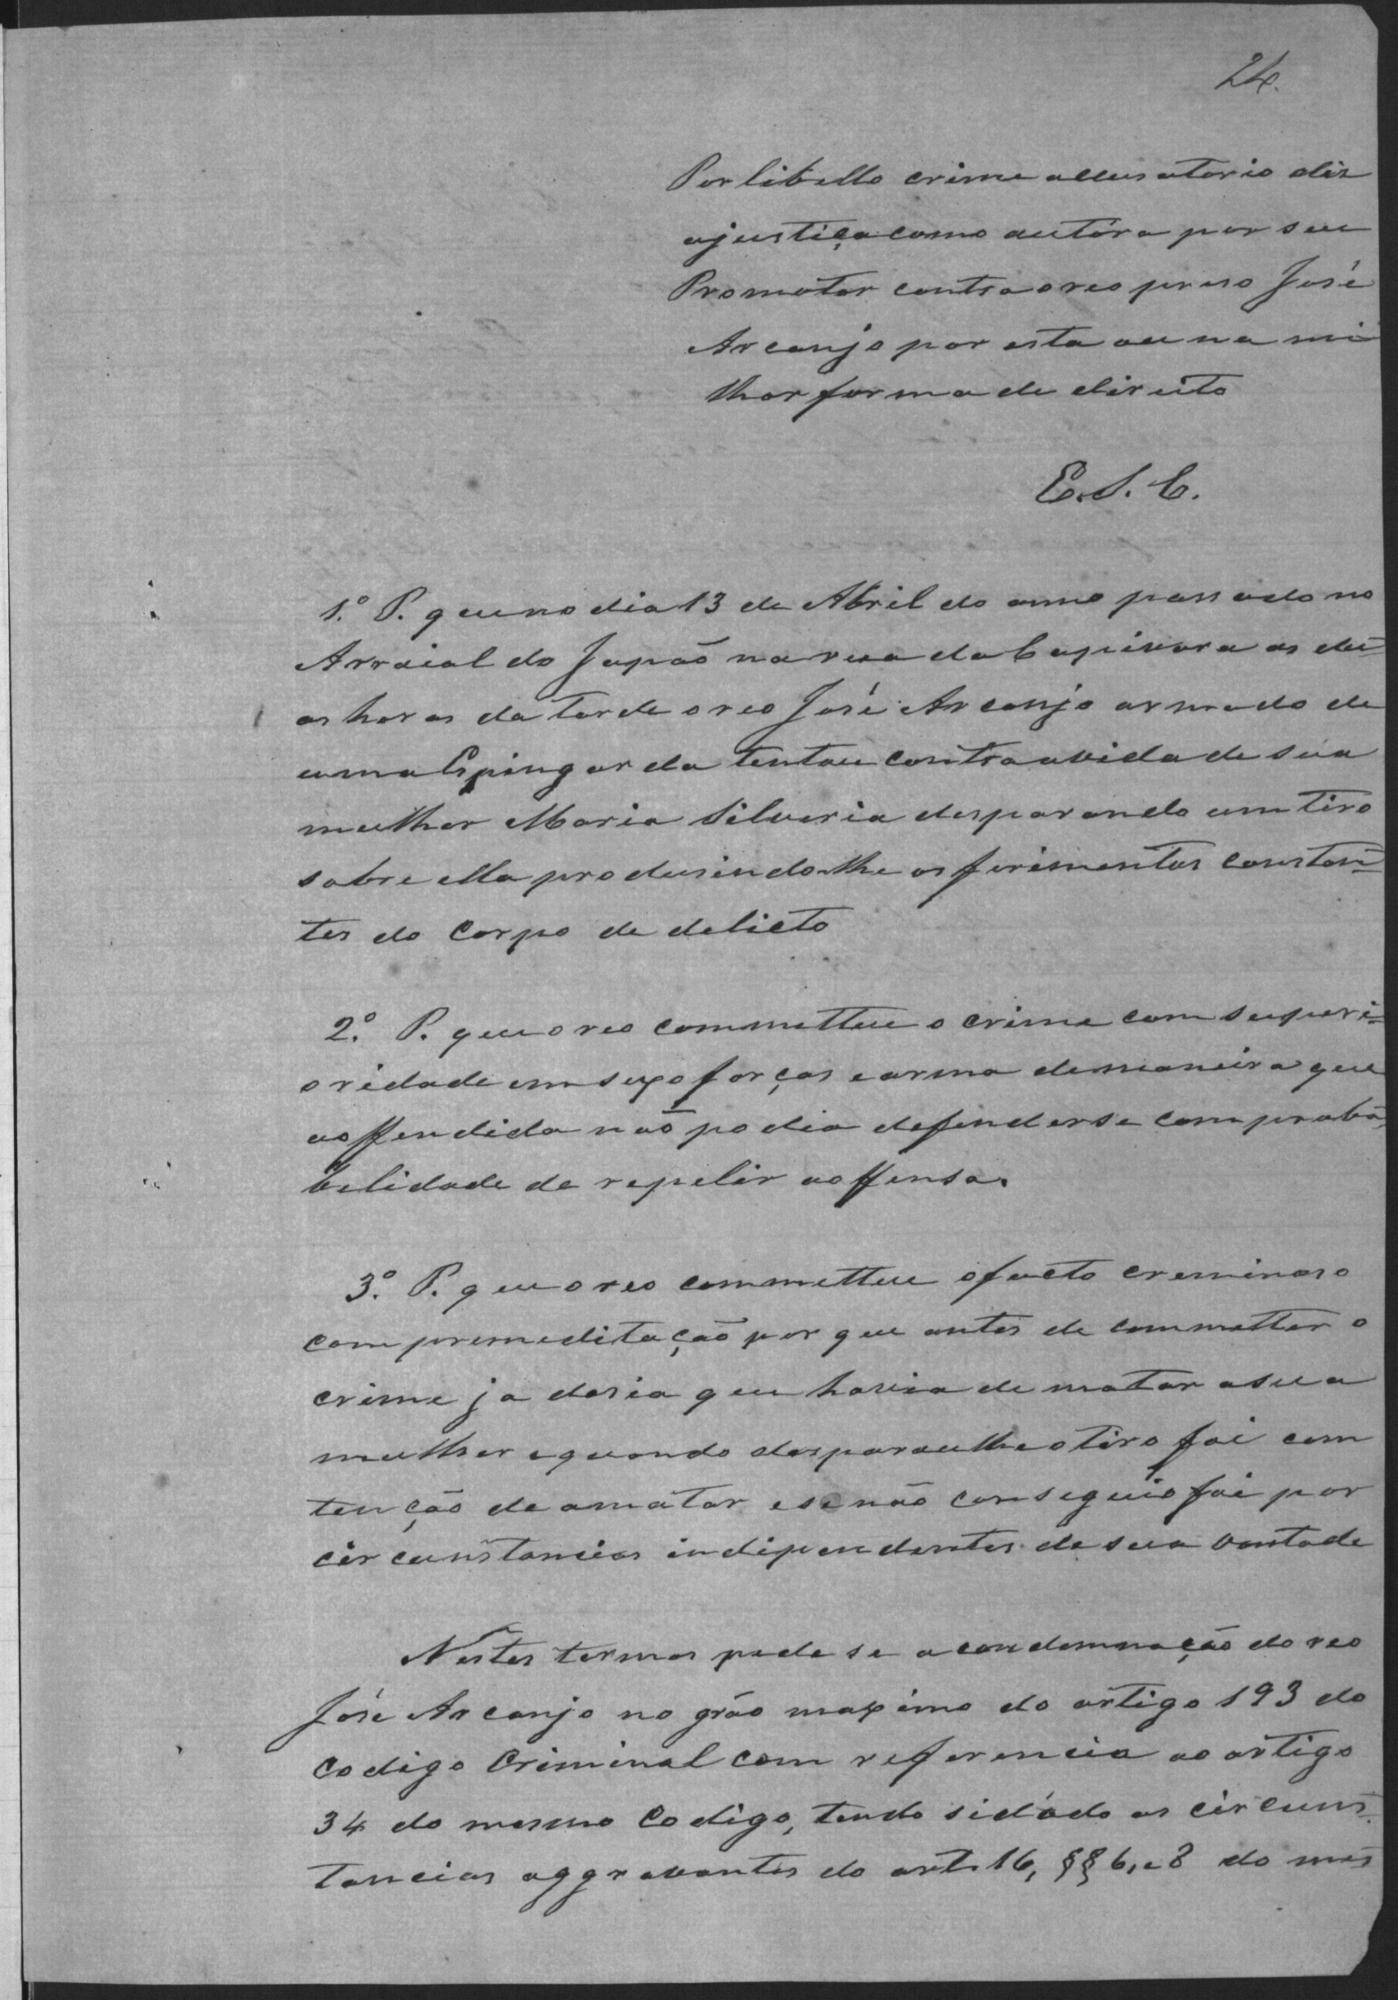 24.
Por libello crime accusatorio diz
a justiça como autóra por seu
Promotor contra o reo preso José
Arcanjo por esta ou na mi
lhor forma de direito
E. S. C.
1.º P. que no dia 13 de Abril do anno passado no
Arraial do Japaõ na rua da Capivara as du=
as horas da tarde o reo José Arcanjo armado de
uma Espingarda tentou contra a vida de sua
mulher Maria Silveria desparando um tiro
sobre ella produsindo-lhe os ferimentos constan=
tes do corpo de delicto
2.º P. que o reo commetteu o crime com superi=
oridade em sexo forças e arma de maneira que
a offendida naõ podia defender se com proba
belidade de repelir a offensa.
3.º P. que o reo commetteu o facto creminoso
com premeditação por que antes de commetter o
crime ja dosia que havia de matar a sua
mulher e quando desparou lhe o tiro foi com
tenção de a matar e se não conseguio foi por
circunstancias indipendentes de sua vontade
Nestes termos pede se a condemnação do reo
José Arcanjo no gráo maximo do artigo 193 do
Codigo Criminal com referencia ao artigo
34 do mesmo Codigo, tendo sido dado as circuns
tancias aggravantes do art. 16, §§ 6, e 8 do mes